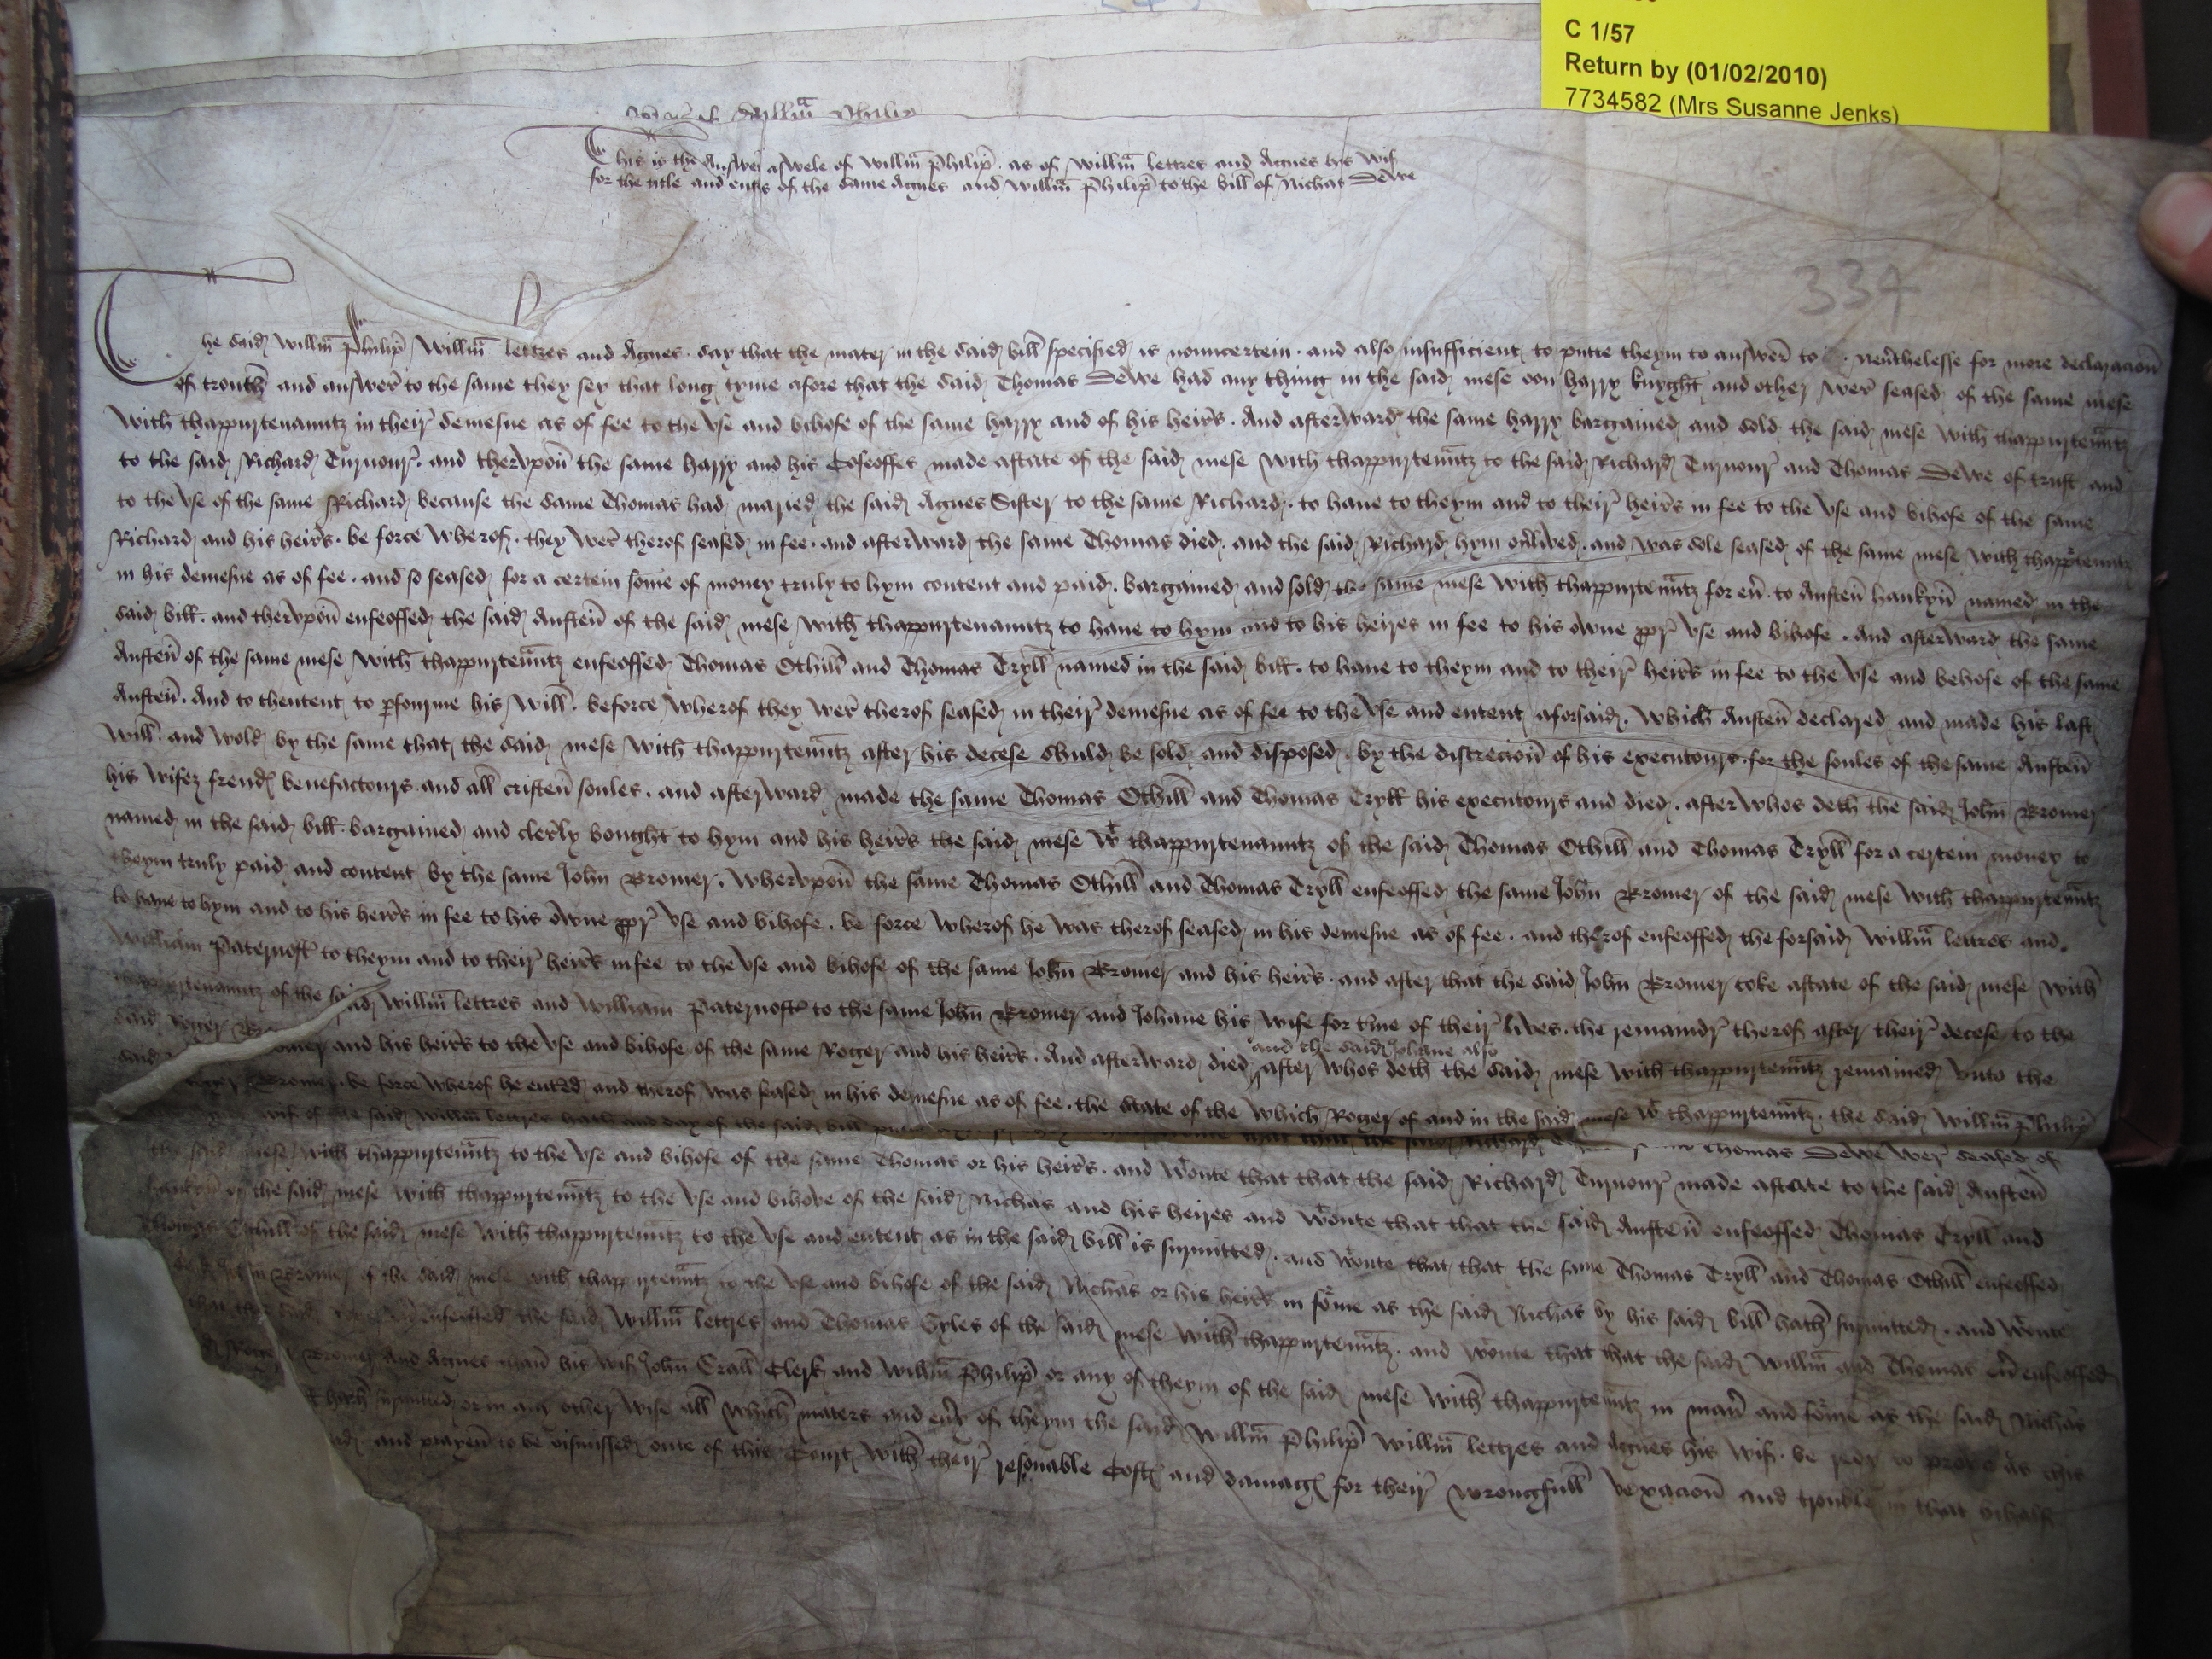 C 1/57
Return by (01/02/2010)
7734582 (Mrs Susanne Jenks)
Willm̄ Philip
This is the Answer aswele of Willm̄ Philip as of Willm̄ lettres and Agnes his wif
for the title and entrs of the same Agnes and Willm̄ Philip to the bill of Nichas Dewe
334
The said Willm̄ Philip Willm̄ lettres and Agnes say that the mater in the said bill specified is nouncertein and also insufficient to putte theym to answer to neūthelesse for more declaracioū
of trouth and answer to the same they sey that long tyme afore that the said Thomas Dewe had any thing in the said mese oon harry knyght and other wer seased of the same mese
with thappurtenauntz in their demesne as of fee to the vse and bihofe of the same harry and of his heirs. And afterward the same harry bargained and sold the said mese with thappurteūntz
to the said Richard Turnour. and thervpoū the same harry and his Cofeoffes made astate of the said mese with thappurteūntz to the said Richard Turnour and Thomas Dewe of trust and
to the vse of the same Richard because the same Thomas had maried the said Agnes Sister to the same Richard. to haue to theym and to their heirs in fee to the vse and bihofe of the same
Richard and his heirs. be force wherof they wer therof seased in fee. and afterward the same Thomas died and the said Richard hym oūlived. and was sole seased of the same mese with thapprteuntz
in his demesne as of fee. and so seased for a certein some of money truly to hym content and paid. bargained and sold the same mese with thappurteūntz for eū to Austeū hankyū named in the
said bill. and thervpoū enfeoffed the said Austeū of the said mese with thappurtenauntz to haue to hym and to his heires in fee to his owne ppr vse and bihofe. And afterward the same
Austeū of the same mese with thappurteūntz enfeoffed Thomas Othill and Thomas Tryll named in the said bill. to haue to theym and to their heirs in fee to the vse and behofe of the same
Austeū. And to thentent to pfourme his will. beforce wherof they wer therof seased in their demesne as of fee to the vse and entent aforsaid. which Austeū declared and made his last
will and wold by the same that the said mese with thappurteūntz after his decese shuld be sold and disposed by the discrecioū of his executours for the soules of the same Austeū
his wifez frendes benefactours and all cristeū soules. and afterward made the same Thomas Othill and Thomas Tryll his executours and died. after whos deth the said Johū Bromer
named in the said bill. bargained and clerly bought to hym and his heirs the said mese wt thappurtenauntz of the said Thomas Othill and Thomas Tryll for a certein money to
theym truly paid and content by the same Johū Bromer. Whervpoū the same Thomas Othill and Thomas Tryll enfeoffed the same Johū Bromer of the said mese with thappurteūntz
to haue to hym and to his heirs in fee to his owne ppr vse and bihofe. be force wherof he was therof seased in his demesne as of fee. and therof enfeoffed the forsaid Willm̄ lettres and
William Paternost to theym and to their heirs in fee to the vse and bihofe of the same Johū Bromer and his heirs. and after that the said Johū Bromer toke astate of the said mese with
thappurtenauntz of the said Willm̄ lettres and William Paternost to the same Johū Bromer and Johane his wife for tme of their lives. the remaindr therof after their decese to the
said Roger Bromer and his heirs to the vse and bihofe of the same Roger and his heirs. And afterward died and the said Johane also after whos deth the said mese with thappurteūntz remained vnto the
said Roger Bromer. be force wherof he entred and therof was seased in his demesne as of fee. the state of the which Roger of and in the said mese wt thappurteūntz. the said Willm̄ Philip
wif of the said Willm̄ lettres hath and day of the said bill that that the said Richard Thomas Dewe wer seased of
the said mese with thappurteūntz to the vse and bihofe of the same Thomas or his heirs. and woute that that the said Richard Turnour made astate to the said Austeū
hankyū of the said mese with thappurteūntz to the vse and bihove of the said Nichas and his heires and woute that that the said Austeū enfeoffed Thomas Tryll and
Thomas Othill of the said mese with thappurteūntz to the vse and entent as in the said bill is surmitted. and woute that that the same Thomas Tryll and Thomas Othill enfeoffed
Johū Bromer of the said mese with thappurteūntz to the vse and bihofe of the said Nichas or his heirs in fōme as the said Nichas by his said bill hath surmitted. and woute
that the said enfeoffed the said Willm̄ lettres and Thomas Gyles of the said mese with thappurteūntz. and woute that that the said Willm̄ and Thomas eū enfeoffed
Roger Bromer and Agnes his wif Johū Crall Clerk and Willm̄ Philip or any of theym of the said mese with thappurteūntz in maū and fōme as the said Nichas
hath surmitted or in any other wise all which maters and eūy of theym the said Willm̄ Philip Willm̄ lettres and Agnes his wif. be redy to prove as this
and prayeū to be dismissed oute of this Court with their resonable Costes and damages for their wrongfull vexacioū and trouble in that bihalf